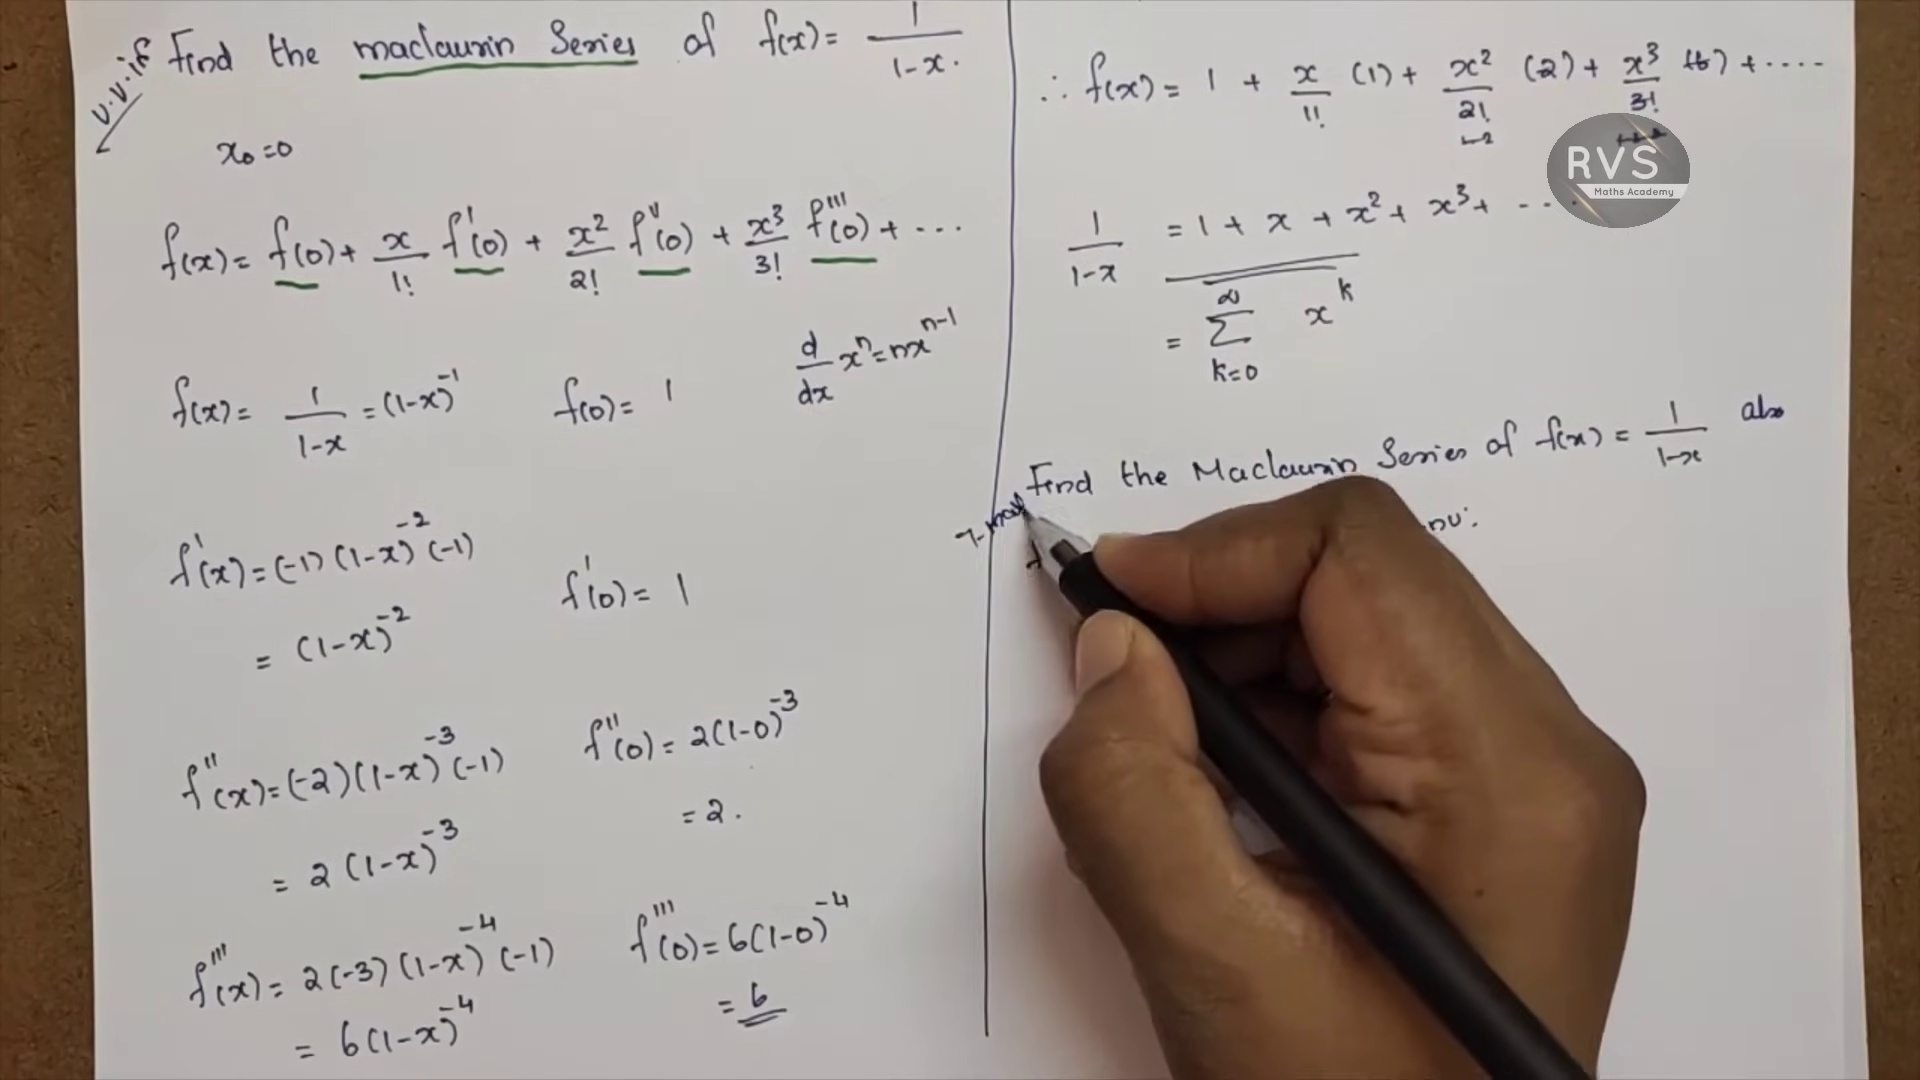 v.v.if
Find the maclaurin Series of f(x) = 1/1-x.
x₀=0
f(x) = f(0) + x/1! f'(0) + x²/2! f''(0) + x³/3! f'''(0) + ...
f(x) = 1/1-x = (1-x)⁻¹ f(0) = 1 d/dx xⁿ = nxⁿ⁻¹
f'(x) = (-1) (1-x)⁻² (-1) f'(0) = 1
= (1-x)⁻²
f''(x) = (-2) (1-x)⁻³ (-1) f''(0) = 2(1-0)⁻³
= 2 (1-x)⁻³ = 2.
f'''(x) = 2(-3) (1-x)⁻⁴ (-1) f'''(0) = 6(1-0)⁻⁴
= 6(1-x)⁻⁴ = 6
∴ f(x) = 1 + x/1! (1) + x²/2! (2) + x³/3! (6) + ....
RVS
Maths Academy
1/1-x = 1 + x + x² + x³ + ...
= ∞ Σ k=0 xᵏ
Find the Maclaurin Series of f(x) = 1/1-x also